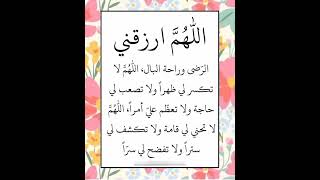 اللَّهُمَّ ارزقني
الرّضى وراحة البال، اللَّهُمَّ لا
تكسر لي ظهراً ولا تصعب لي
حاجة ولا تعظّم عليّ أمراً، اللَّهُمَّ
لا تحني لي قامة ولا تكشف لي
ستراً ولا تفضح لي سرّاً